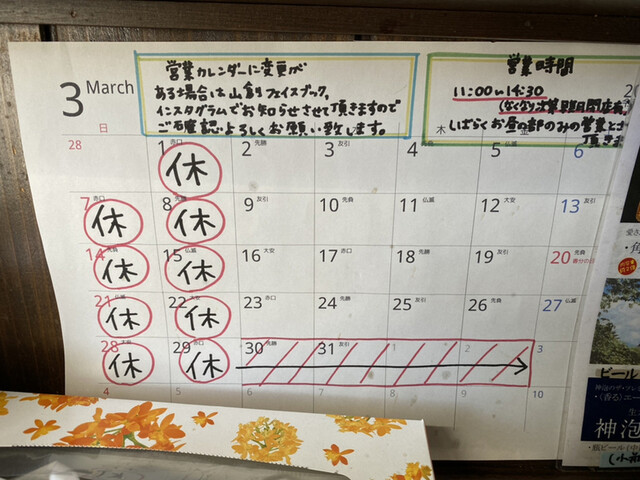 3 March
営業カレンダーに変更が
ある場合は山創フェイスブック,
インスタグラムでお知らせさせて頂きますので
ご確認よろしくお願い致します。
営業時間
11:00~14:30
しばらくお昼の部のみの営業とさ
頂きま
日 木
28 1 赤口 休 2 先勝 3 友引 4 5 6
7 赤口 休 8 休 9 友引 10 先負 11 仏滅 12 大安 13 友引
14 休 15 仏滅 休 16 大安 17 赤口 18 先勝 19 友引 20 先負
21 仏滅 休 22 休 23 赤口 24 先勝 25 友引 26 先負 27 仏滅
28 休 29 休 30 先勝 31 友引 1 2 3
4 5 6 7 8 9 10
ビール
神泡